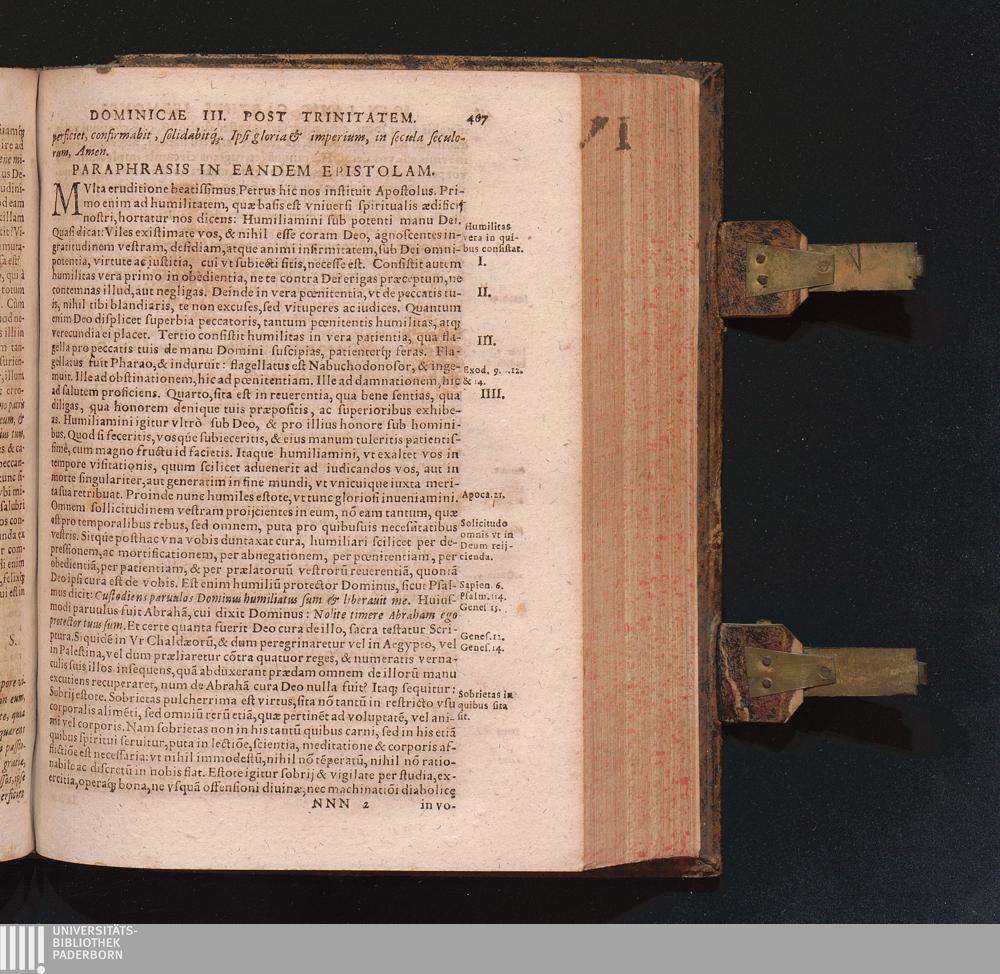 DOMINICAE III. POST TRINITATEM. 467
perficiet, confirmabit, ſolidabitq́;. Ipſi gloria & imperium, in ſecula ſeculo-
rum, Amen.
PARAPHRASIS IN EANDEM EPISTOLAM.
MVlta eruditione beatiſſimus Petrus hic nos inſtituit Apoſtolus. Pri-
mo enim ad humilitatem, quæ baſis eſt vniuerſi ſpiritualis ædificij
noſtri, hortatur nos dicens: Humiliamini ſub potenti manu Dei.
Quaſi dicat: Viles exiſtimate vos, & nihil eſſe coram Deo, agnoſcentes in-
gratitudinem veſtram, deſidiam, atque animi infirmitatem, ſub Dei omni-
potentia, virtute ac iuſtitia, cui vt ſubiecti ſitis, neceſſe eſt. Conſiſtit autem
humilitas vera primo in obedientia, ne te contra Dei erigas præceptum, ne
contemnas illud, aut negligas. Deinde in vera pœnitentia, vt de peccatis tu-
is, nihil tibi blandiaris, te non excuſes, ſed vituperes ac iudices. Quantum
enim Deo diſplicet ſuperbia peccatoris, tantum pœnitentis humilitas, atq;
verecundia ei placet. Tertio conſiſtit humilitas in vera patientia, qua fla-
gella pro peccatis tuis de manu Domini ſuſcipias, patienterq; feras. Fla-
gellatus fuit Pharao, & induruit: flagellatus eſt Nabuchodonoſor, & inge-
muit. Ille ad obſtinationem, hic ad pœnitentiam. Ille ad damnationem, hic
ad ſalutem proficiens. Quarto, ſita eſt in reuerentia, qua bene ſentias, qua
diligas, qua honorem denique tuis præpoſitis, ac ſuperioribus exhibe-
as. Humiliamini igitur vltrò ſub Deo, & pro illius honore ſub homini-
bus. Quod ſi feceritis, vosque ſubieceritis, & eius manum tuleritis patientiſ-
ſimè, cum magno fructu id facietis. Itaque humiliamini, vt exaltet vos in
tempore viſitationis, quum ſcilicet aduenerit ad iudicandos vos, aut in
morte ſingulariter, aut generatim in fine mundi, vt vnicuique iuxta meri-
ta sua retribuat. Proinde nunc humiles eſtote, vt tunc glorioſi inueniamini.
Omnem ſollicitudinem veſtram proijcientes in eum, nõ eam tantum, quæ
eſt pro temporalibus rebus, ſed omnem, puta pro quibuſuis neceſſitatibus
veſtris. Sitque poſthac vna vobis duntaxat cura, humiliari ſcilicet per de-
preſſionem, ac mortificationem, per abnegationem, per pœnitentiam, per
obedientiã, per patientiam, & per prælatoruū veſtrorū reuerentiã, quoniã
Deo ipſi cura eſt de vobis. Eſt enim humiliū protector Dominus, ſicut Pſal-
mus dicit: Cuſtodiens paruulos Dominus humiliatus ſum & liberauit me. Huiuſ-
modi paruulus fuit Abrahã, cui dixit Dominus: Nolite timere Abraham ego
protector tuus ſum. Et certe quanta fuerit Deo cura de illo, ſacra teſtatur Scri-
ptura. Siquidē in Vr Chaldæorū, & dum peregrinaretur vel in Aegypto, vel
in Paleſtina, vel dum præliaretur cõtra quatuor reges, & numeratis verna-
culis ſuis illos inſequens, quã abduxerant prædam omnem de illorū manu
excutiens recuperaret, num de Abrahã cura Deo nulla fuit? Itaq; ſequitur:
Sobrij eſtote. Sobrietas pulcherrima eſt virtus, ſita nõ tantū in reſtricto vſu
corporalis alimēti, ſed omniū rerū etiã, quæ pertinēt ad voluptatē, vel ani-
mi vel corporis. Nam ſobrietas non in his tantū quibus carni, ſed in his etiã
quibus ſpiritui ſeruitur, puta in lectiõe, ſcientia, meditatione & corporis af-
flictiõe eſt neceſſaria: vt nihil immodeſtū, nihil nõ tēperatū, nihil nõ ratio-
nabile ac diſcretū in nobis fiat. Eſtote igitur ſobrij & vigilate per ſtudia, ex-
ercitia, operaq; bona, ne vſquã offenſioni diuinæ, nec machinatiõi diabolicę
NNN 2 in vo-
Humilitas
vera in qui-
bus conſiſtat.
I.
II.
III.
Exod. 9. .12.
& 14.
IIII.
Apoca. 21.
Solicitudo
omnis vt in
Deum reij-
cienda.
Sapien. 6.
Pſalm. 114.
Geneſ 15.
Geneſ. 12.
Geneſ. 14.
Sobrietas in
quibus ſita
ſit.
UNIVERSITÄTS-
BIBLIOTHEK
PADERBORN